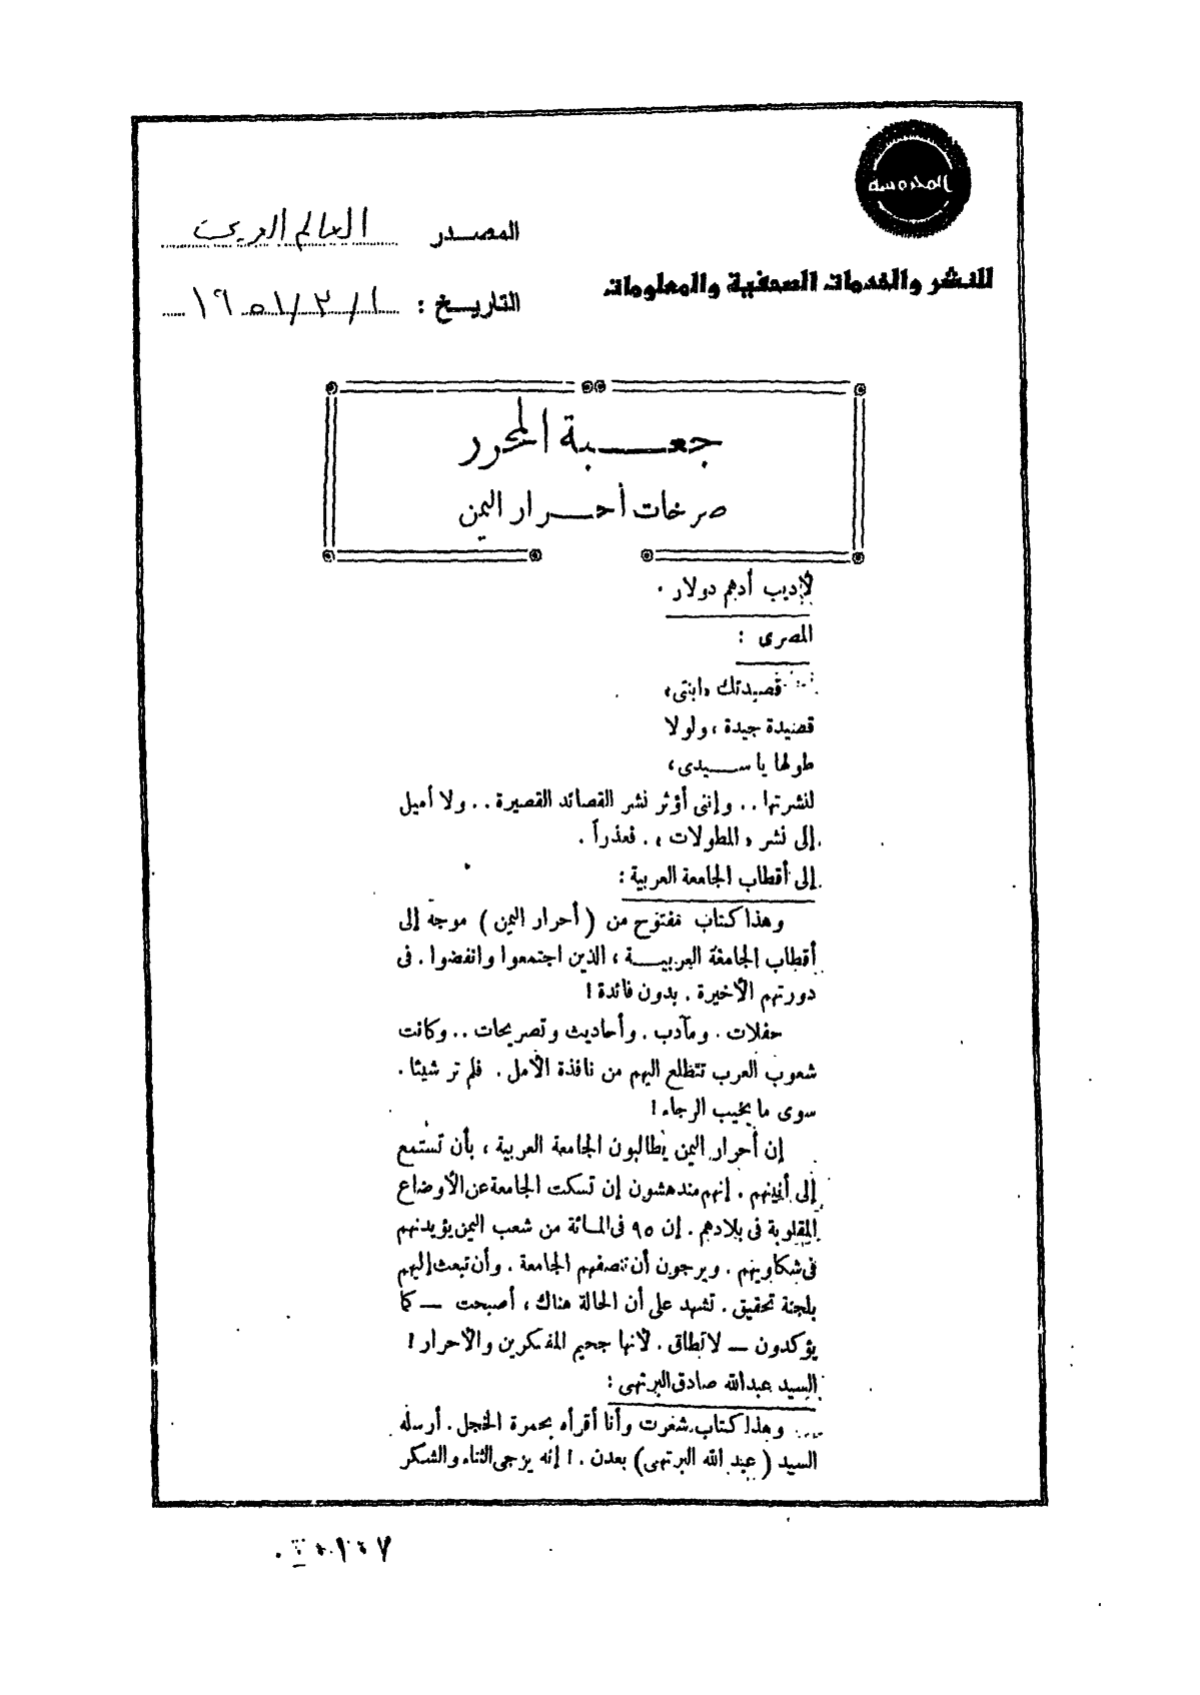 المحروسة
للنشر والخدمات الصحفية والمعلومات
المصدر العالم العربى
التاريخ : ١ / ٢ / ١٩٥١
جعبة المحرر
صرخات أحرار اليمن
لأديب أدهم دولار .
المصرى :
قصيدتك «ابنتى»
قصيدة جيدة ، ولولا
طولها يا سيدى ،
لنشرتها .. وإننى أؤثر نشر القصائد القصيرة .. ولا أميل
إلى نشر « المطولات » . فعذراً .
إلى أقطاب الجامعة العربية :
وهذا كتاب مفتوح من ( أحرار اليمن ) موجه إلى
أقطاب الجامعة العربية ، الذين اجتمعوا وانفضوا . فى
دورتهم الأخيرة . بدون فائدة !
حفلات . ومآدب . وأحاديث وتصريحات .. وكانت
شعوب العرب تتطلع اليهم من نافذة الأمل . فلم تر شيئا .
سوى ما يخيب الرجاء !
إن أحرار اليمن يطالبون الجامعة العربية ، بأن تستمع
إلى أنينهم . إنهم مندهشون إن تسكت الجامعة عن الأوضاع
المقلوبة فى بلادهم . إن ٩٥ فى المائة من شعب اليمن يؤيدنهم
فى شكاويهم . ويرجون أن تنصفهم الجامعة . وأن تبعث إليهم
بلجنة تحقيق . تشهد على أن الحالة هناك ، أصبحت — كما
يؤكدون — لا تطاق . لأنها جحيم المفكرين والأحرار !
السيد عبدالله صادق البرتهى :
وهذا كتاب شعرت وأنا أقرأه بحمرة الخجل . أرسله
السيد ( عبد الله البرتهى ) بعدن . ! إنه يزجى الثناء والشكر